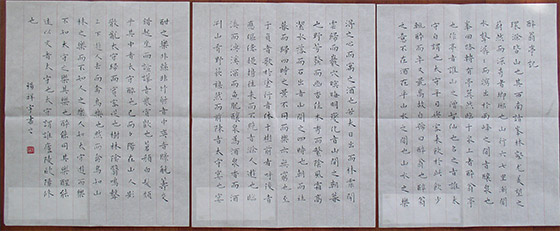 醉翁亭記
環滁皆山也其西南諸峯林壑尤美望之
蔚然而深秀者瑯琊也山行六七里漸聞
水聲潺潺而瀉出於兩峯之間者釀泉也
峯回路轉有亭翼然臨于泉上者醉翁亭
也作亭者誰山之僧智仙也名之者誰太
守自謂也太守與客來飲于此飲少
輒醉而年又最高故自號曰醉翁也醉翁
之意不在酒在乎山水之間也山水之樂
得之心而寓之酒也若夫日出而林霏開
雲歸而巖穴暝晦明變化者山間之朝暮
也野芳發而幽香佳木秀而繁陰風霜高
潔水落而石出者山間之四時也朝而往
暮而歸四時之景不同而樂亦無窮也至
于負者歌於途行者休于樹前者呼後者
應傴僂提攜往來而不絕者滁人遊也臨
溪而漁溪深而魚肥釀泉爲酒泉香而酒
洌山肴野蔌雜然而前陳者太守宴也宴
酣之樂非絲非竹射者中弈者勝觥籌交
錯起坐而諠譁者衆賓歡也蒼顏白髮頹
乎其中者太守醉也已而夕陽在山人影
散亂太守歸而賓客從也樹林陰翳鳴聲
上下遊人去而禽鳥樂也然而禽鳥知山
林之樂而不知人之樂人知從太守遊而樂
不知太守之樂其樂也醉能同其樂醒能
述以文者太守也太守謂誰廬陵歐陽修
也